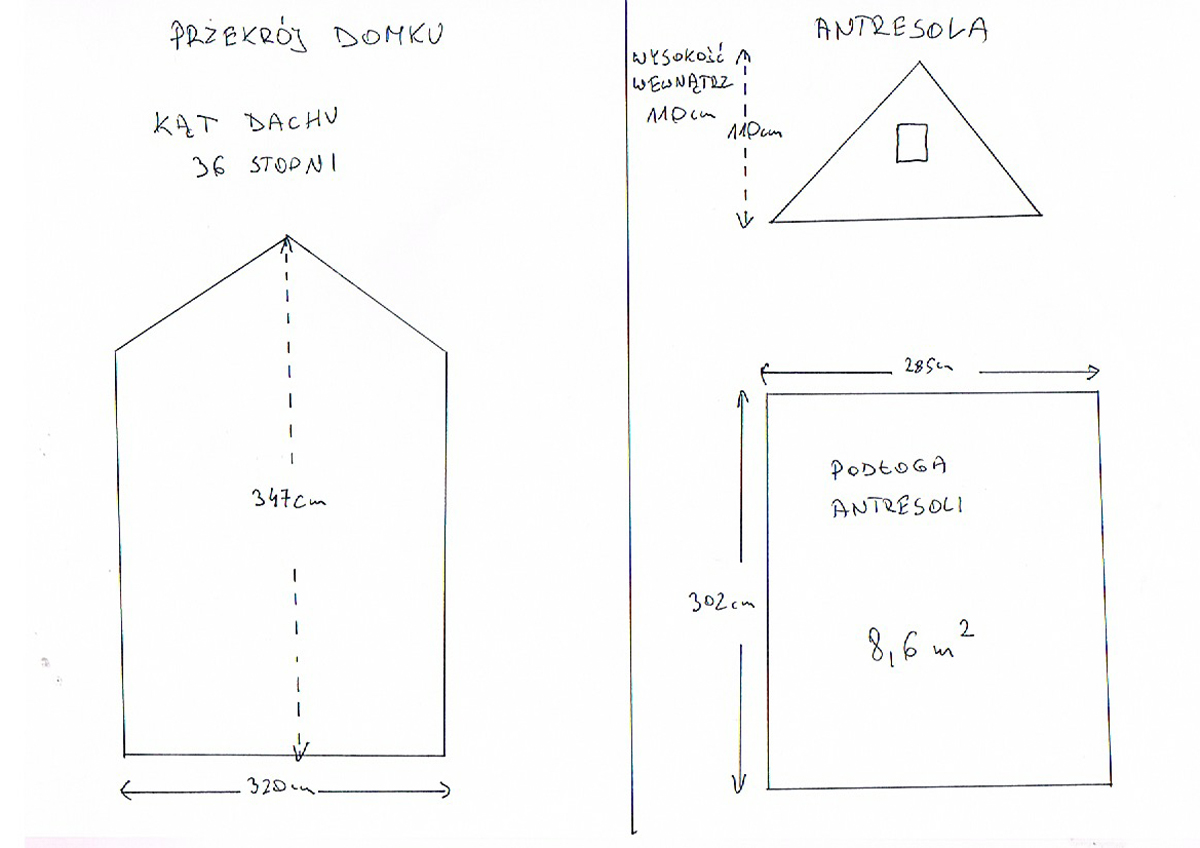 PRZEKRÓJ DOMKU
KĄT DACHU
36 STOPNI
347cm
320cm
ANTRESOLA
WYSOKOŚĆ
WEWNĄTRZ
110cm
110cm
285cm
PODŁOGA
ANTRESOLI
302cm
8,6 m²